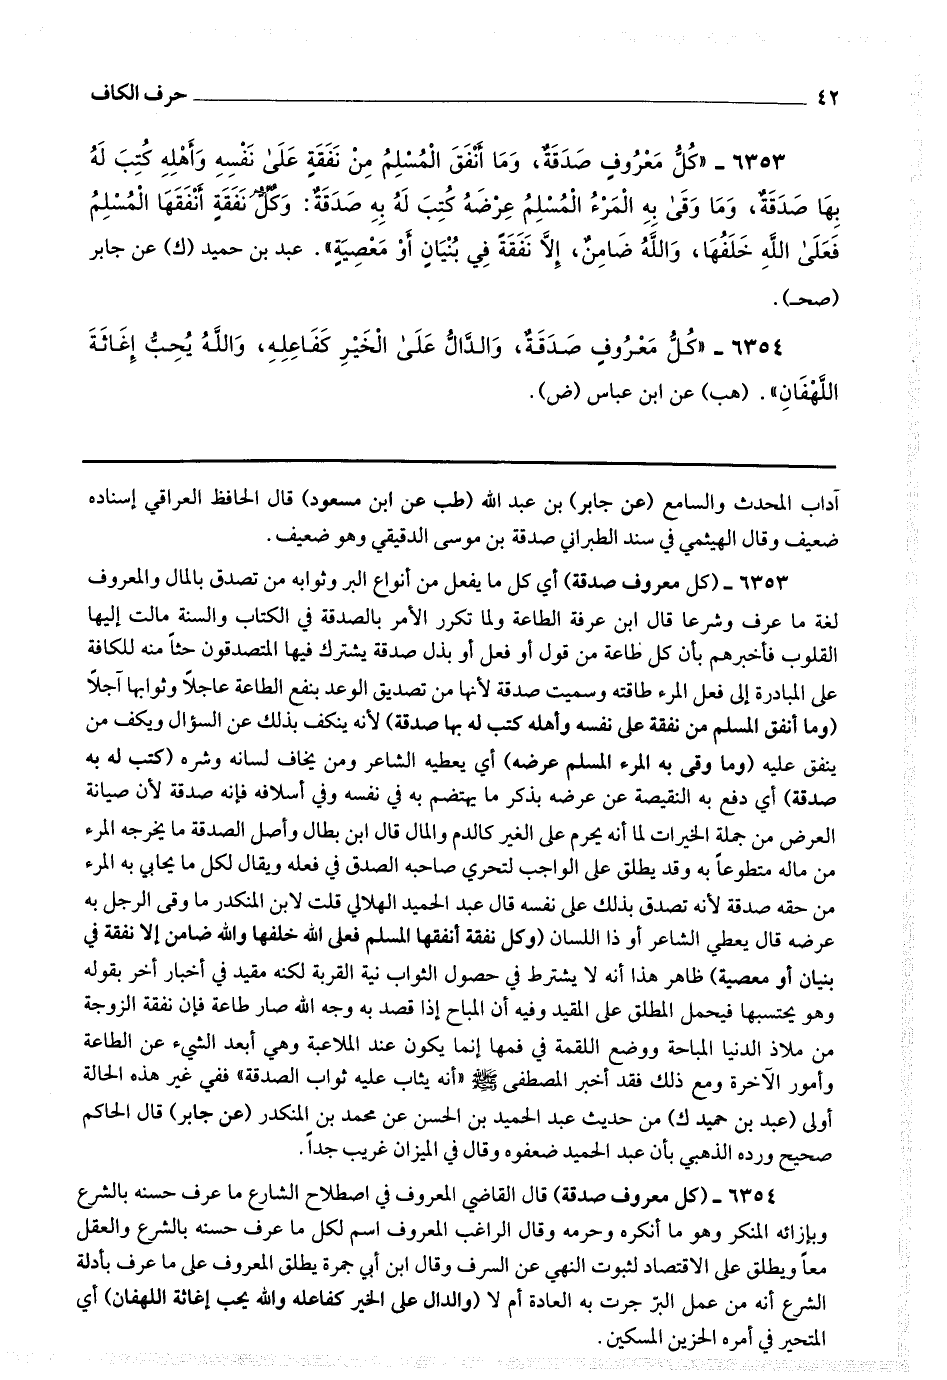 ٤٢ حرف الكاف
٦٣٥٣ ـ «كُلُّ مَعْرُوفٍ صَدَقَةٌ، وَمَا أَنْفَقَ الْمُسْلِمُ مِنْ نَفَقَةٍ عَلَىٰ نَفْسِهِ وَأَهْلِهِ كُتِبَ لَهُ
بِهَا صَدَقَةٌ، وَمَا وَقَىٰ بِهِ الْمَرْءُ الْمُسْلِمُ عِرْضَهُ كُتِبَ لَهُ بِهِ صَدَقَةٌ: وَكُلُّ نَفَقَةٍ أَنْفَقَهَا الْمُسْلِمُ
فَعَلَىٰ اللَّهِ خَلَفُهَا، وَاللَّهُ ضَامِنٌ، إِلَّا نَفَقَةً فِي بُنْيَانٍ أَوْ مَعْصِيَةٍ». عبد بن حميد (ك) عن جابر
(صحـ).
٦٣٥٤ ـ «كُلُّ مَعْرُوفٍ صَدَقَةٌ، وَالدَّالُّ عَلَىٰ الْخَيْرِ كَفَاعِلِهِ، وَاللَّهُ يُحِبُّ إِغَاثَةَ
اللَّهْفَانِ». (هب) عن ابن عباس (ض).
آداب المحدث والسامع (عن جابر) بن عبد الله (طب عن ابن مسعود) قال الحافظ العراقي إسناده
ضعيف وقال الهيثمي في سند الطبراني صدقة بن موسى الدقيقي وهو ضعيف.
٦٣٥٣ ـ (كل معروف صدقة) أي كل ما يفعل من أنواع البر وثوابه من تصدق بالمال والمعروف
لغة ما عرف وشرعا قال ابن عرفة الطاعة ولما تكرر الأمر بالصدقة في الكتاب والسنة مالت إليها
القلوب فأخبرهم بأن كل طاعة من قول أو فعل أو بذل صدقة يشترك فيها المتصدقون حثاً منه للكافة
على المبادرة إلى فعل المرء طاقته وسميت صدقة لأنها من تصديق الوعد بنفع الطاعة عاجلاً وثوابها آجلاً
(وما أنفق المسلم من نفقة على نفسه وأهله كتب له بها صدقة) لأنه ينكف بذلك عن السؤال ويكف من
ينفق عليه (وما وقى به المرء المسلم عرضه) أي يعطيه الشاعر ومن يخاف لسانه وشره (كتب له به
صدقة) أي دفع به النقيصة عن عرضه بذكر ما يهتضم به في نفسه وفي أسلافه فإنه صدقة لأن صيانة
العرض من جملة الخيرات لما أنه يحرم على الغير كالدم والمال قال ابن بطال وأصل الصدقة ما يخرجه المرء
من ماله متطوعاً به وقد يطلق على الواجب لتحري صاحبه الصدق في فعله ويقال لكل ما يحابي به المرء
من حقه صدقة لأنه تصدق بذلك على نفسه قال عبد الحميد الهلالي قلت لابن المنكدر ما وقى الرجل به
عرضه قال يعطي الشاعر أو ذا اللسان (وكل نفقة أنفقها المسلم فعلى الله خلفها والله ضامن إلا نفقة في
بنيان أو معصية) ظاهر هذا أنه لا يشترط في حصول الثواب نية القربة لكنه مقيد في أخبار أخر بقوله
وهو يحتسبها فيحمل المطلق على المقيد وفيه أن المباح إذا قصد به وجه الله صار طاعة فإن نفقة الزوجة
من ملاذ الدنيا المباحة ووضع اللقمة في فمها إنما يكون عند الملاعبة وهي أبعد الشيء عن الطاعة
وأمور الآخرة ومع ذلك فقد أخبر المصطفى ﷺ «أنه يثاب عليه ثواب الصدقة» ففي غير هذه الحالة
أولى (عبد بن حميد ك) من حديث عبد الحميد بن الحسن عن محمد بن المنكدر (عن جابر) قال الحاكم
صحيح ورده الذهبي بأن عبد الحميد ضعفوه وقال في الميزان غريب جداً.
٦٣٥٤ ـ (كل معروف صدقة) قال القاضي المعروف في اصطلاح الشارع ما عرف حسنه بالشرع
وبإزائه المنكر وهو ما أنكره وحرمه وقال الراغب المعروف اسم لكل ما عرف حسنه بالشرع والعقل
معاً ويطلق على الاقتصاد لثبوت النهي عن السرف وقال ابن أبي جمرة يطلق المعروف على ما عرف بأدلة
الشرع أنه من عمل البرّ جرت به العادة أم لا (والدال على الخير كفاعله والله يحب إغاثة اللهفان) أي
المتحير في أمره الحزين المسكين.